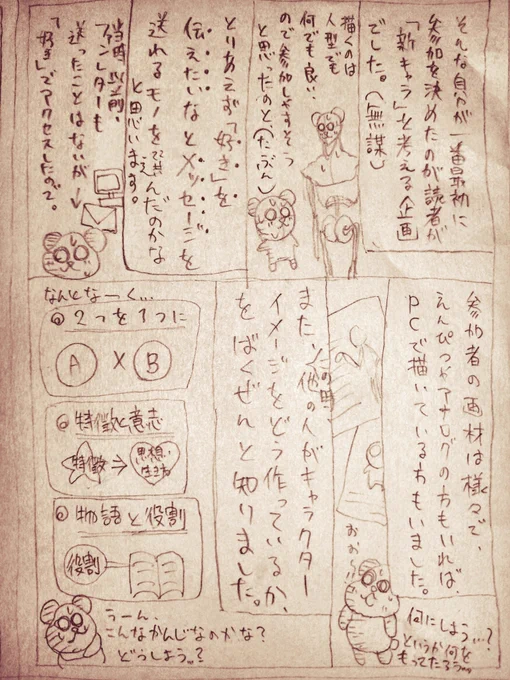 そんな自分が一番最初に
参加を決めたのが読者が
「新キャラ」を考える企画
でした。(無謀)
描くのは
人型でも
何でも良い、
ので参加しやすそう
と思ったのと(たぶん)
とりあえず「好き」を
伝えたいなとメッセージを
送れるモノを選んだのかな
と思います。
当時以前、
ファンレターも
送ったことはないが→
「好き」でアクセスしたので。
参加者の画材は様々で、
えんぴつやアナログの方もいれば、
PCで描いている方もいました。
おぉ〜
何にしよう…?
というか何を
もってたろう
また、その時、
他の人がキャラクター
イメージをどう作っているか、
をばくぜんと知りました。
なんとなーく…
◎2つを1つに
A × B
◎特徴と意志
特徴 → 思想・生き方
◎物語と役割
役割
うーん、
こんなかんじなのかな?
どうしよう。?